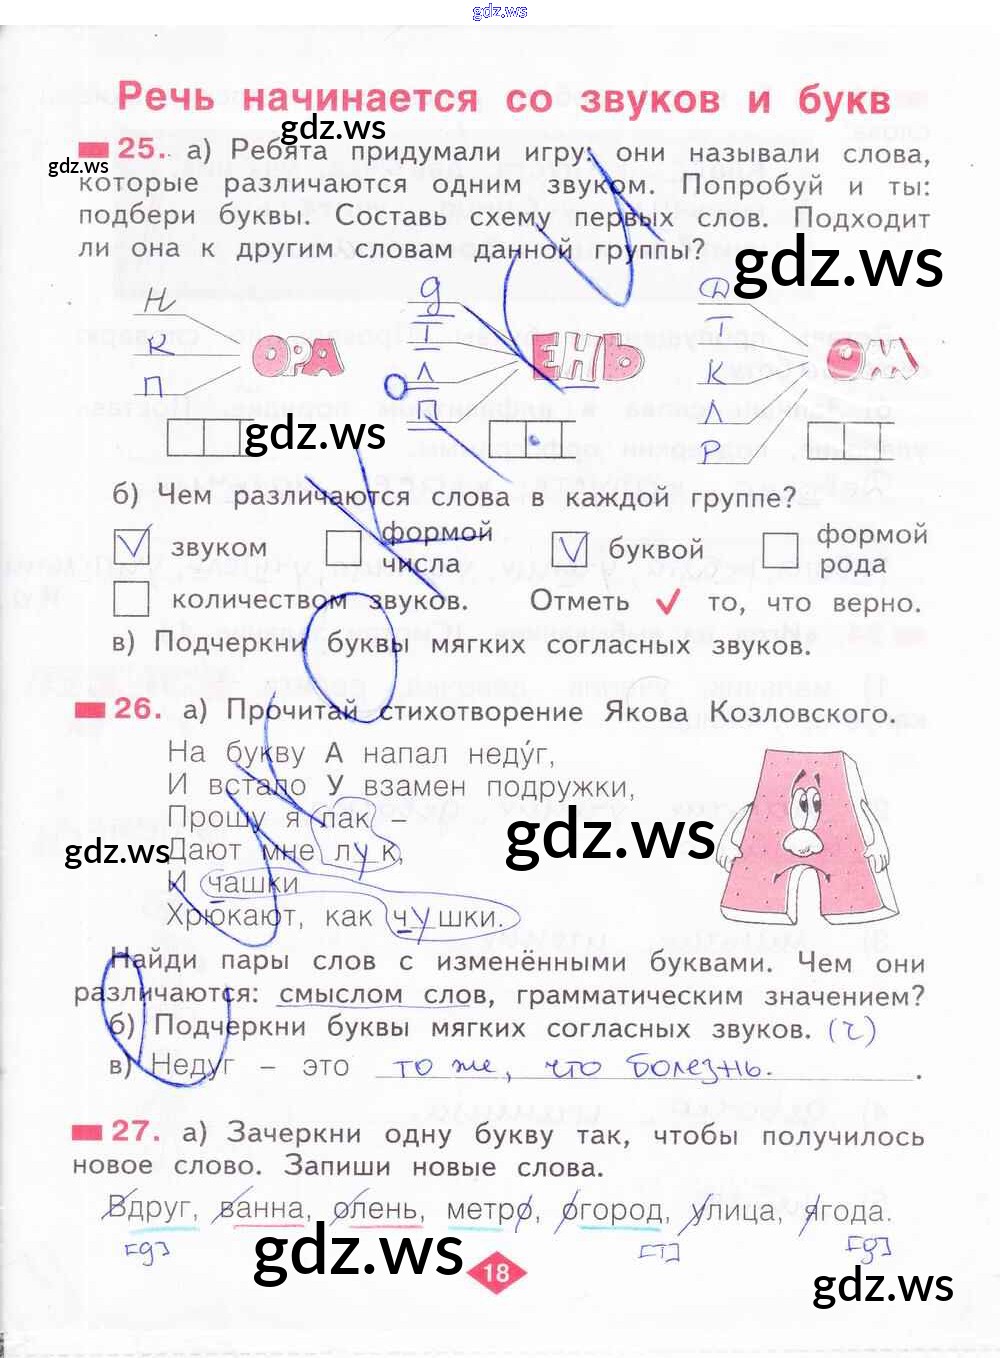 gdz.ws
Речь начинается со звуков и букв
gdz.ws
gdz.ws
25. а) Ребята придумали игру: они называли слова,
которые различаются одним звуком. Попробуй и ты:
подбери буквы. Составь схему первых слов. Подходит
ли она к другим словам данной группы?
gdz.ws
Н
К
П
ОРА
Д
Т
Л
П
ЕНЬ
Д
Т
К
Л
Р
ОМ
gdz.ws
б) Чем различаются слова в каждой группе?
звуком
формой числа
буквой
формой рода
количеством звуков. Отметь ✓ то, что верно.
в) Подчеркни буквы мягких согласных звуков.
26. а) Прочитай стихотворение Якова Козловского.
На букву А напал неду́г,
И встало У взамен подружки,
Прошу я лак –
Дают мне лук,
И чашки
Хрюкают, как чушки.
gdz.ws
gdz.ws
Найди пары слов с изменёнными буквами. Чем они
различаются: смыслом слов, грамматическим значением?
б) Подчеркни буквы мягких согласных звуков. (ч)
в) Недуг – это то же, что болезнь.
27. а) Зачеркни одну букву так, чтобы получилось
новое слово. Запиши новые слова.
Вдруг, ванна, олень, метро, огород, улица, ягода.
[д] [т] [д]
gdz.ws
18
gdz.ws